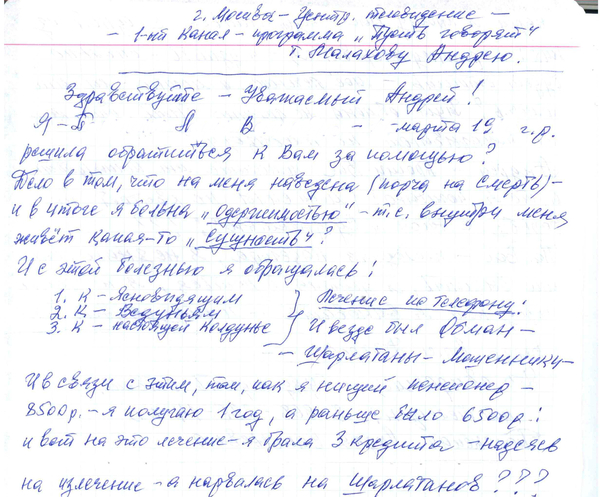 г. Москвы – Центр. телевидение –
– 1-ый канал – программа „Пусть говорят"
т. Малахову Андрею.
Здравствуйте – Уважаемый Андрей!
Я – П Л В – – марта 19 г.р.
решила обратиться к Вам за помощью?
Дело в том, что на меня наведена (порча на смерть) –
и в итоге я больна „одержимостью" – т.е. внутри меня
живёт какая-то „сущность"?
И с этой болезнью я обращалась!
1. К – Ясновидящим
2. К – Ведуньям
3. К – настоящей колдунье
Лечение по телефону!
И везде был Обман –
– Шарлатаны – Мошенники –
И в связи с этим, там, как я нищий пенсионер –
8500р. – я получаю 1 год, а раньше было 6500р.!
и вот на это лечение – я брала 3 кредита – надеясь
на излечение – а нарвалась на Шарлатанов???